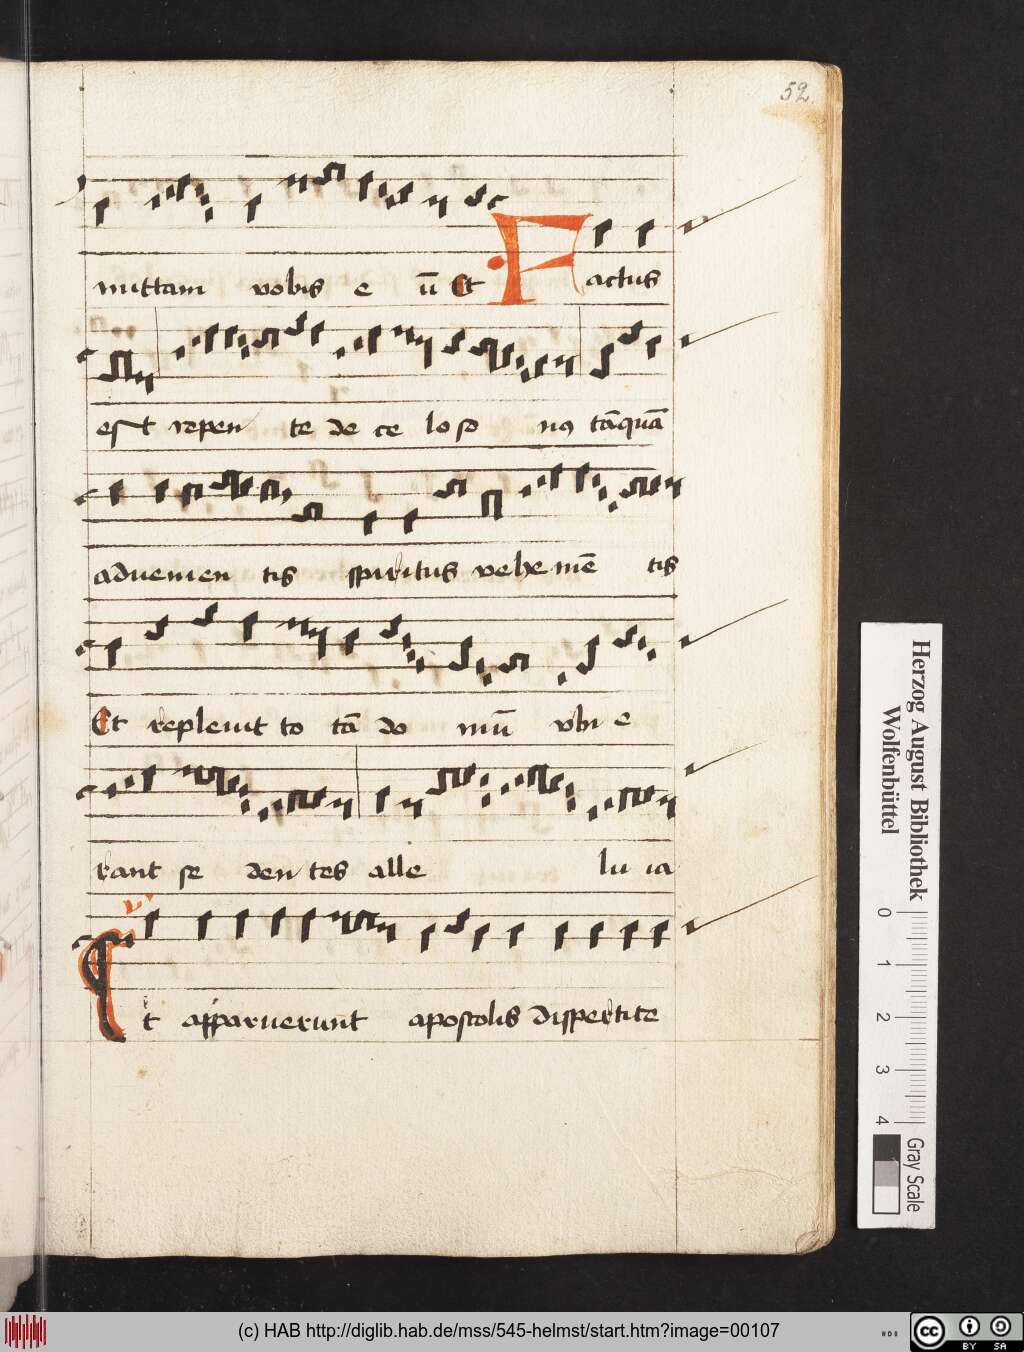 52
mittam vobis e ū Et Factus
est repen te de ce lo so nꝰ tāquā
aduenien tis spiritus vehe mē tis
Et repleuit to tā do mū vbi e
rant se den tes alle lu ia
Et apparuerunt apostolis dispertite
Herzog August Bibliothek
Wolfenbüttel
0 1 2 3 4
Gray Scale
(c) HAB http://diglib.hab.de/mss/545-helmst/start.htm?image=00107
cc BY SA